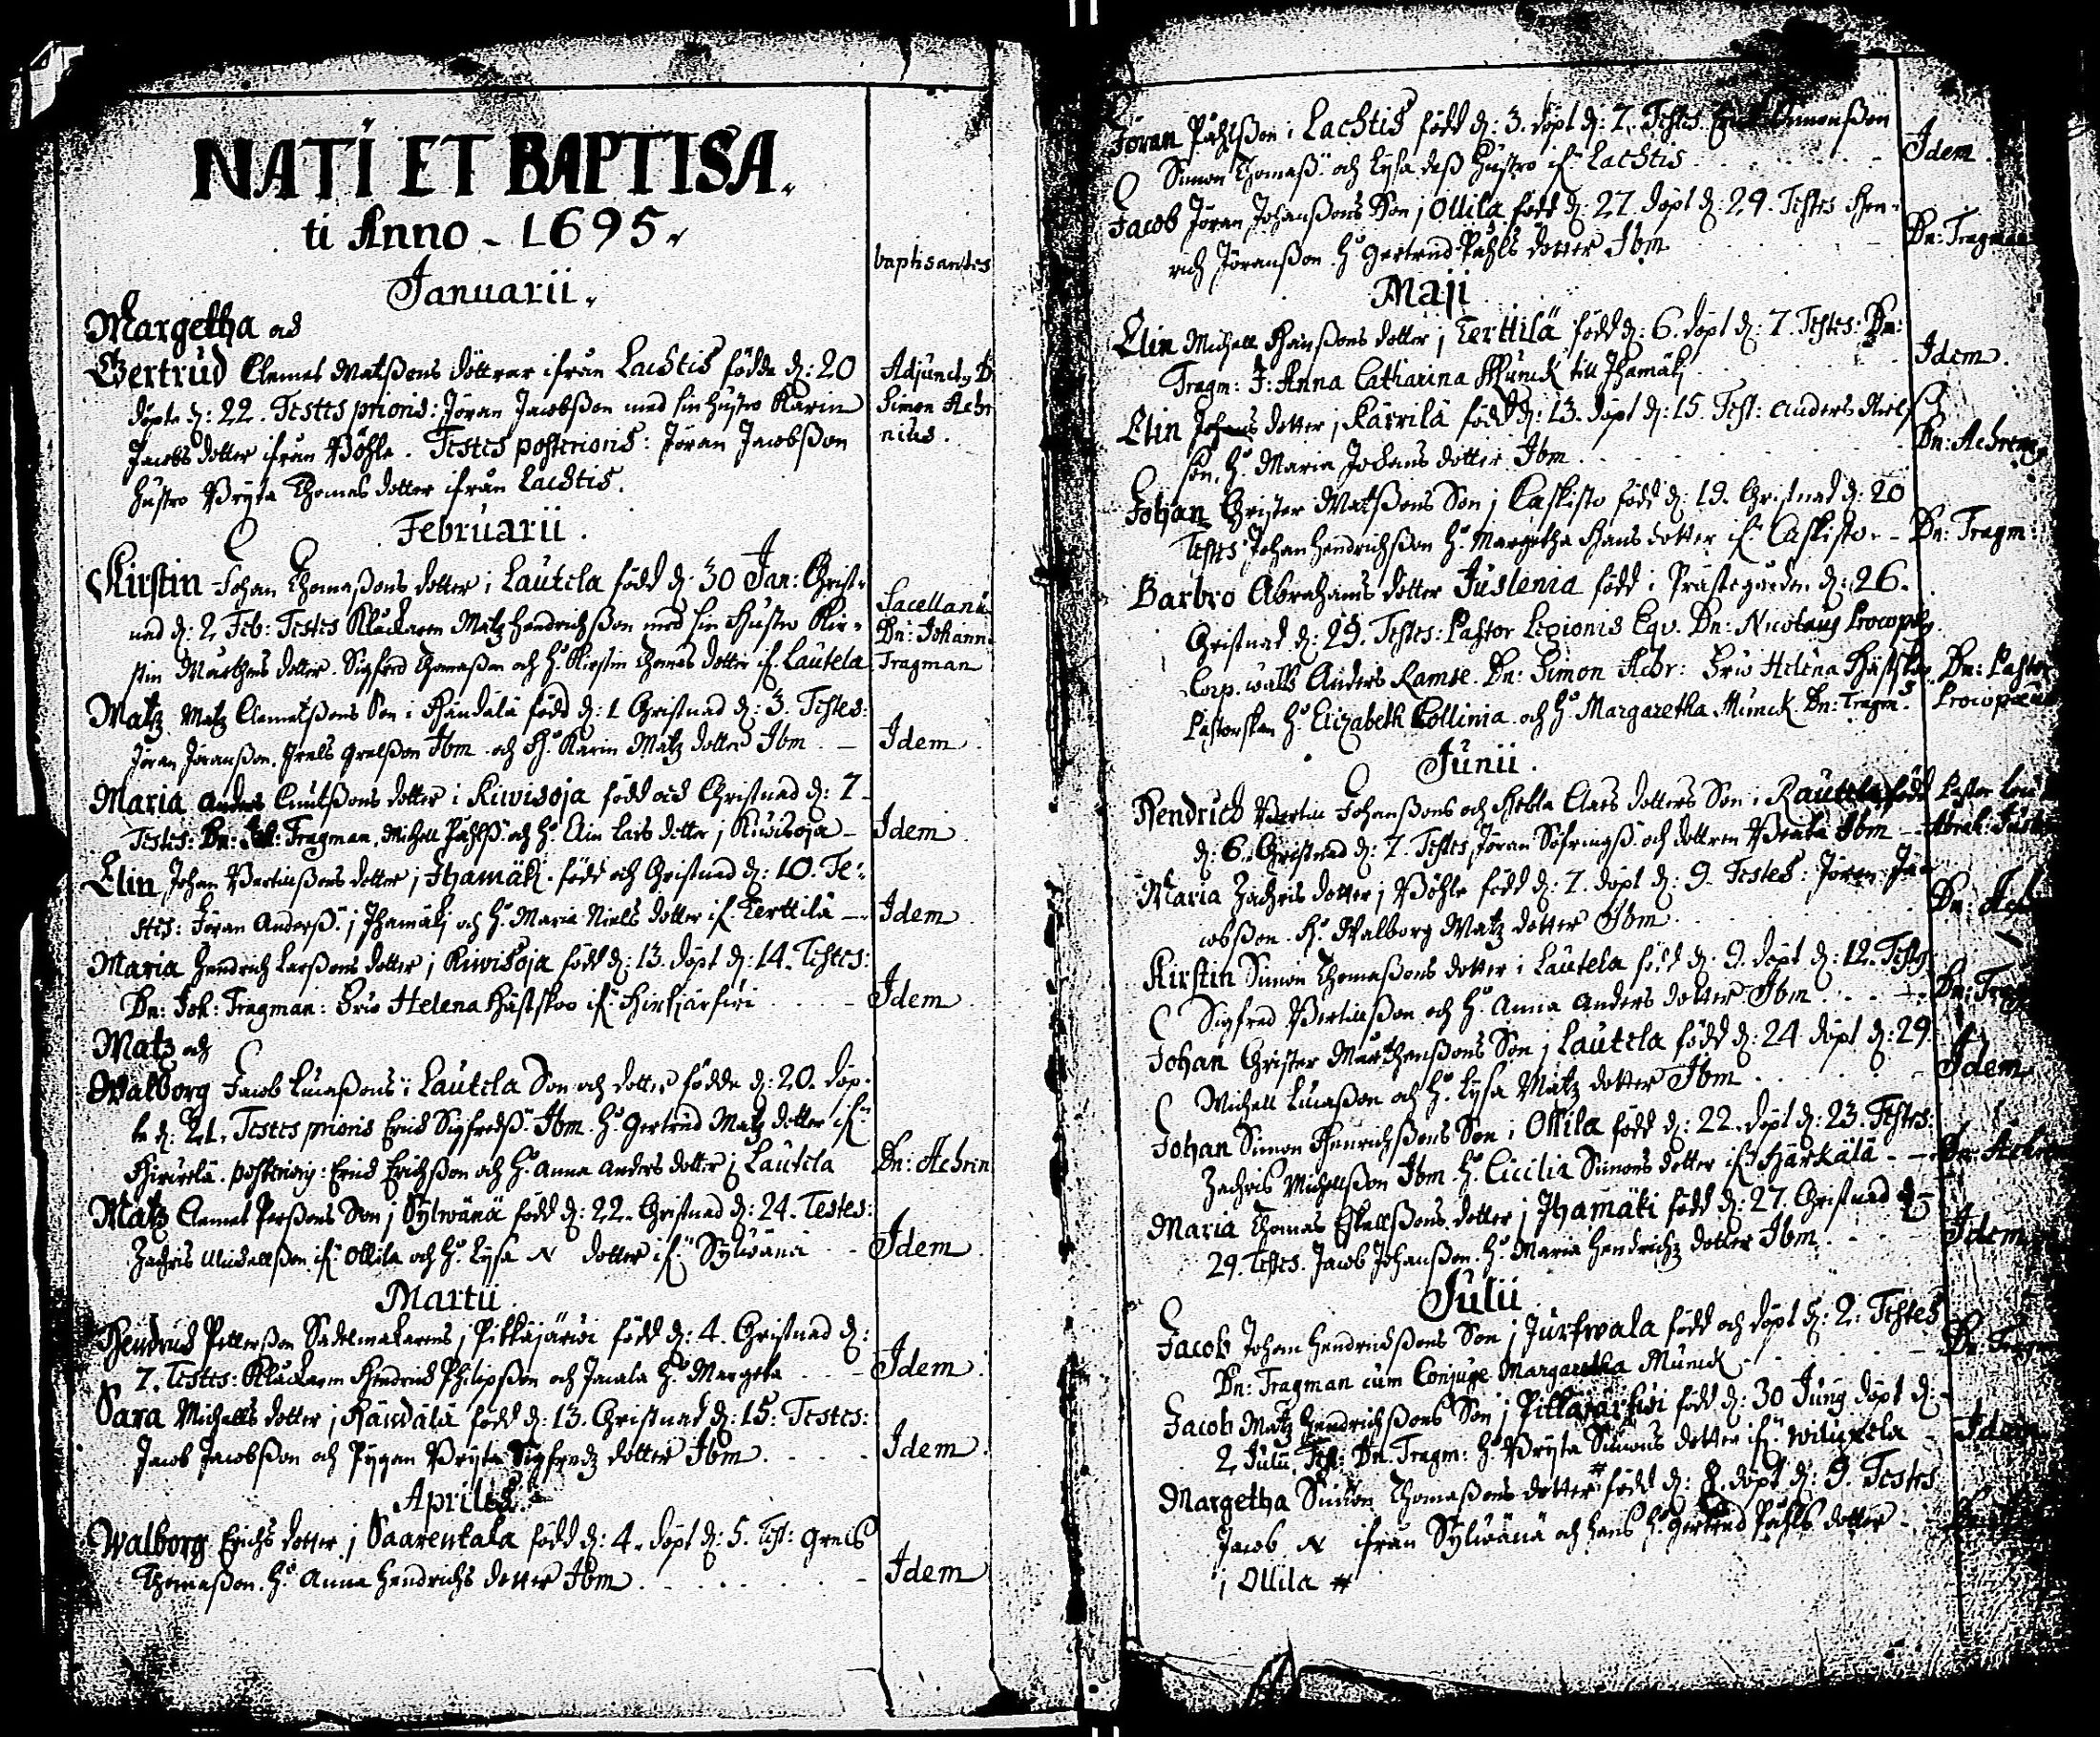 NATI ET BAPTISA-
ti Anno - 1695
baptisantes
Januarii
Margetha och
Gertrud Clemet Matßons döttrar ifrån Lachtis födde d: 20 Adjunct9 D
döpte d: 22. Testes prioris: Jöran Jacobßon med sin hustro Karin Simon Achr
Jacobs dotter ifrån Böhle. Testes posterioris: Jöran Jacobßon nius.
hustro Bryta Thomas dotter ifrån Lachtis.
Februarii.
Kirstin Johan Thomaßons dotter i Lautela född d: 30 Jan: Christ-
nad d: 2 Feb: Testes Kluckaren Matz Hendrichßon med sin Hustro Kir- Sacellanus Dn: Johann
stin Marthens dotter. Sigfred Thomaßon och H. Kirstin Thomas dotter if. Lautela Tragman
Matz Matz Clemetßons Son i Kändälä född d: 1 Christnad d: 3. Testes:
Jöran Jöranßon. Grels Grelsßon Ibm och H. Karin Matz dotter Ibm - Idem
Maria Anders Cnutßons dotter i Kiwisoja född och Christnad d: 7
Testes: Dn: Joh: Tragman, Michell Påhlß. och H. Elin Lars dotter j Kiwisoja - Idem
Elin Johan Bertilßons dotter j Ihamäki född och Christnad d: 10. Te-
stes: Jöran Anderß. j Ihamäki och H. Maria Niels dotter if. Terttilä - Idem
Maria Hendrich Larßons dotter j Kiwisoja född d: 13. döpt d: 14. Testes:
Dn: Joh: Tragman: Frw Helena Hästsko if. Hirsjärfwi - Idem
Matz och
Walborg Jacob Lucaßons i Lautela Son och dotter födde d: 20. döp-
te d: 21. Testes prioris Erich Sigfredß. Ibm. H. Gertrud Matz dotter if.
Hirwelä. posterioris: Erich Erichßon och H. Anna Anders dotter j Lautela Dn: Achrin
Matz Clemet Perßons Son j Sylwänä född d: 22. Christnad d: 24. Testes:
Zachris Michellßon if. Ollila och H. Lysa N dotter if. Sylwänä - Idem
Martii
Hendrich Pillerßon Sadelmakarens j Pitkäjärwi född d: 4. Christnad d:
7. Testes: Kluckaren Hendrich Philipßon och Jacala H. Margeta - Idem
Sara Michells dotter j Kändälä född d: 13. Christnad d: 15. Testes:
Jacob Jacobßon och Pygan Bryta Sigfredz dotter Ibm. - Idem
Aprilis.
Walborg Erichs dotter j Saarentaka född d: 4. döpt d: 5. Test: Grels
Thomaßon. H. Anna Hendrichs dotter Ibm. - Idem
Jöran Påhlßon i Lachtis född d: 3. döpt d: 7. Testes. Erich Simonßon
Simon Thomaß. och Lysa deß hustro if. Lachtis - Idem
Jacob Jöran Johanßons Son j Ollila född d: 27 döpt d: 29. Testes Hen-
rich Jöranßon H. Gertrud Påhls dotter Ibm Dn: Tragman
Maji
Elin Michell Hanßons dotter j Terttilä född d: 6. döpt d: 7. Testes: Dn:
Tragm: J: Anna Catharina Munck till Ihamäki Idem.
Elin Johans dotter j Karrilä född d: 13. döpt d: 15. Test: Anders
son, H. Maria Johans dotter Ibm. Dn: Achren9
Johan Christer Matßons Son j Caskisto född d: 19. Christnad d: 20
Testes Johan Hendrichßon H. Margetha Hans dotter if. Caskisto - Dn: Tragm:
Barbro Abrahams dotter Juslenia född i Prästegården d: 26.
Christnad d: 29. Testes: Pastor Legionis Eqv. Dn: Nicolaus Procop9
Corp. wälb Anders Ramse. Dn: Simon Achr: Frw Helena Hästsko. Dn: Pastor
Pastorskan H. Elizabeth Collinia och H. Margaretha Munck. Dn: Tragm. Procopæus
Junii.
Hendrich Bertil Johanßons och Hebla Clars dotters Son i Rautela född Pastor Loci
d: 6. Christnad d: 7. Testes Jöran Sofringß. och dottren Beata Ibm - Abrah: Jusle
Maria Zachris dotter j Böhle född d: 7. döpt d: 9. Testes: Jöran Ja-
cobßon. H. Walborg Matz dotter Ibm. Dn: Ach
Kirstin Simon Thomaßons dotter i Lautela född d: 9. döpt d: 12. Test9
Sigfred Bertilßon och H. Anna Anders dotter Ibm. Dn: Trag
Johan Christer Marthenßons Son j Lautela född d: 24 döpt d: 29.
Michell Lucaßon och H. Lysa Matz dotter Ibm Idem
Johan Simon Henrichßons Son i Ollila född d: 22. döpt d: 23. Testes:
Zachris Michellßon Ibm. H. Cicilia Simons dotter if. Härkälä - Dn: Achren
Maria Thomas Eskellßons dotter j Ihamäki född d: 27. Christnad d:
29. Testes. Jacob Johanßon. H. Maria Hendrichz dotter Ibm. Idem
Julii
Jacob Johan Hendrichßons Son j Jurwala född och döpt d: 2. Testes
Dn: Tragman cum Conjuge Margaretha Munck Dn: Tragm
Jacob Matz Hendrichßons Son j Pitkäjärfwi född d: 30 Juny döpt d:
2 Julii. Test: Dn. Tragm: H. Bryta Simons dotter if. Wiluxela - Idem
Margetha Simon Thomaßons dotter # född d: 8. döpt d: 9. Testes
Jacob N ifrån Sylwänä och hans H. Gertrud Påhls dotter -
j Ollila #